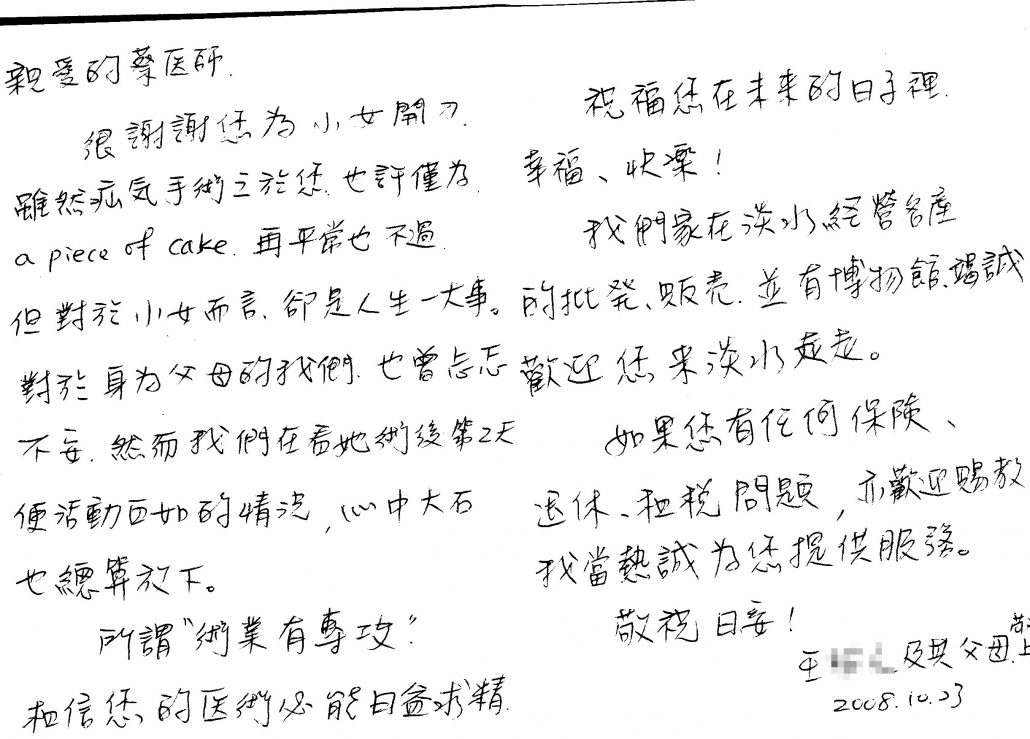 親愛的蔡医師.
很謝謝您為小女開刀.
雖然疝気手術之於您.也許僅為
a piece of cake.再平常也不過.
但對於小女而言.卻是人生一大事。
對於身为父母的我們.也曾忐忑
不安.然而我們在看她術後第2天
便活動自如的情況,心中大石
也總算放下。
所謂"術業有專攻".
相信您的医術必能日益求精.
祝福您在未來的日子裡.
幸福、快樂!
我們家在淡水經營名產
的批発、販売.並有博物館.竭誠
歡迎您來淡水走走。
如果您有任何保険、
退休、租稅問題,亦歡迎賜教
我當熱誠為您提供服務。
敬祝日安!
王 及其父母.敬上
2008.10.23